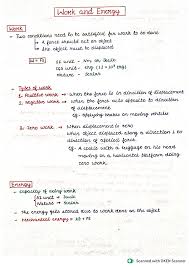 Work and Energy
Work
- Two conditions need to be satisfied for work to be done
→ A force should act on object
→ the object must be displaced
W = FS
SI unit - Joule
CGS unit - erg
Nature - Scalar
Types of work
1. Positive work → when the force is in direction of displacement
2. Negative work → when force acts opposite to direction of displacement
3. Zero work → When displacement is zero
When object displaced along a direction
direction of applied force.
of a coolie with a luggage on his head
moving on a horizontal platform
zero work.
Energy
- capacity of doing work
SI unit → Joule
Nature → Scalar
→ The energy gets stored due to work done on the object
→ Mechanical energy =
Scanned with OKEN Scanner